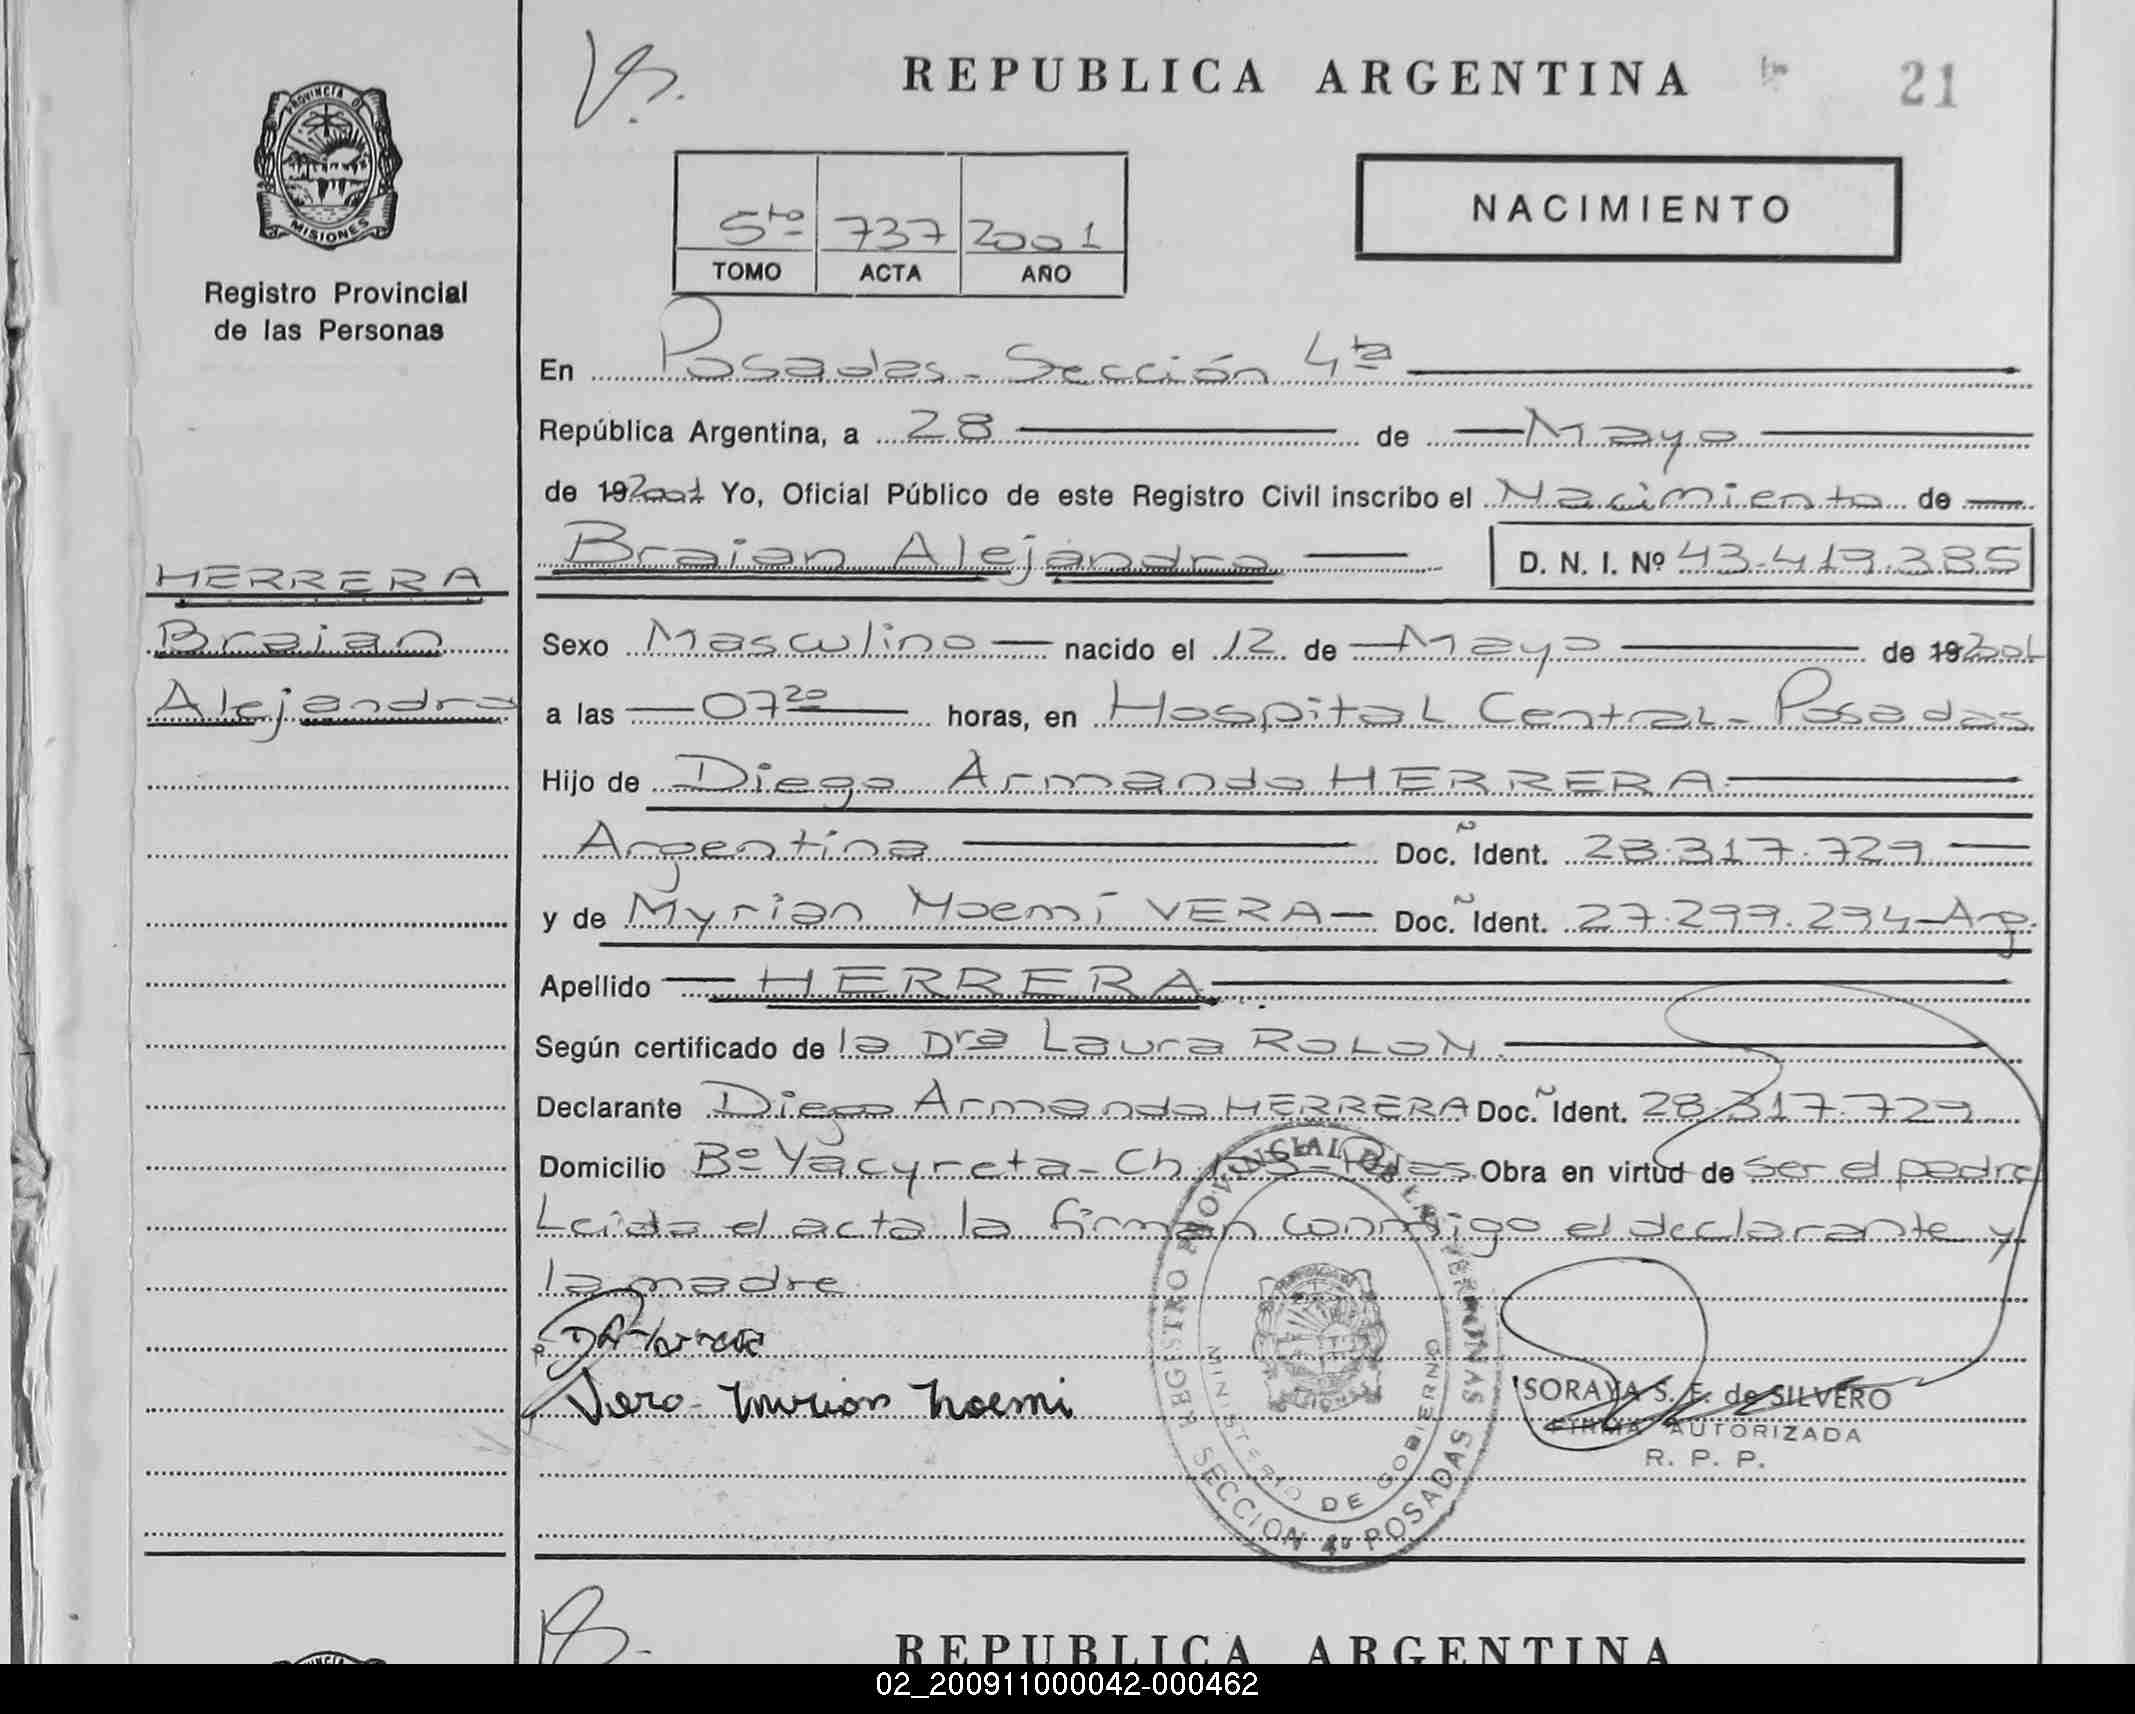 REPUBLICA ARGENTINA
21
PROVINCIA DE
MISIONES
Registro Provincial
de las Personas
NACIMIENTO
5to 737 2001
TOMO ACTA AÑO
En Posadas - Sección 4ta
República Argentina, a 28 de Mayo
de 192001 Yo, Oficial Público de este Registro Civil inscribo el Nacimiento de
Braian Alejandro D. N. I. Nº 43.419.385
HERRERA
Braian
Alejandro
Sexo Masculino nacido el 12 de Mayo de 192001
a las 07 20 horas, en Hospital Central - Posadas
Hijo de Diego Armando HERRERA
Argentina Doc. Ident. 28.317.729
y de Myrian Noemí VERA Doc. Ident. 27.299.294 - Arg.
Apellido HERRERA
Según certificado de la Dra Laura ROLON
Declarante Diego Armando HERRERA Doc. Ident. 28.317.729
Domicilio Bº Yacyreta - Ch. - Pdas Obra en virtud de ser el padre
Leida el acta la firman conmigo el declarante y
la madre
Vera Myrian Noemi
REGISTRO PROVINCIAL DE LAS PERSONAS
MINISTERIO DE GOBIERNO
SECCION 4º POSADAS
SORAYA S. F. de SILVERO
FIRMA AUTORIZADA
R. P. P.
REPUBLICA ARGENTINA
02_200911000042-000462